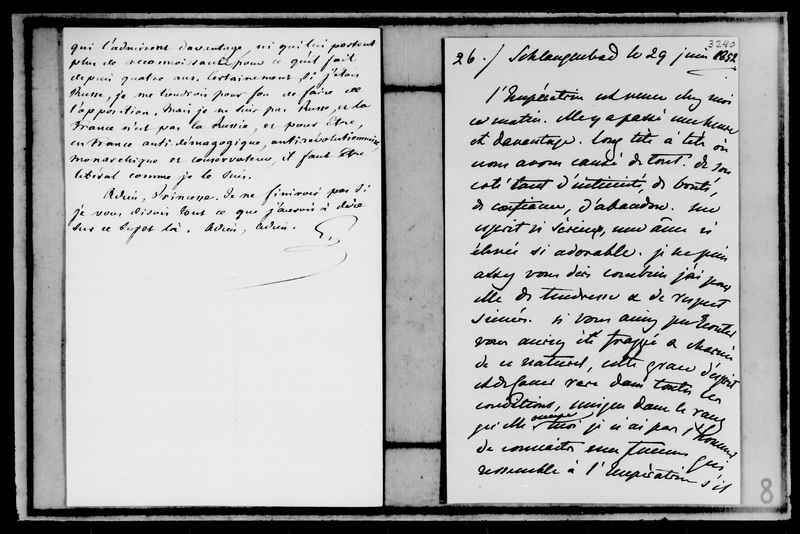 qui l'admirent davantage, ni qui lui portent
plus de reconnaissance pour ce qu'il fait
depuis quatre ans. Certainement si j'étais
Russe, je me tiendrois pour fou de faire de
l'opposition. Mais je ne suis pas Russe, et la
France n'est pas la Russie, et pour être,
en France antidémagogique, antirévolutionnaire,
monarchique et conservateur, il faut être
libéral comme je le suis.
Adieu, Princesse. Je ne finirois pas si
je vous disois tout ce que j'aurois à dire
sur ce sujet là. Adieu, adieu.
G.
3240
26./ Schlangenbad le 29 juin 1852
l'Impératrice est venue chez moi
ce matin. Elle y a passé une heure
et davantage. long tête à tête où
nous avons causé de tout. de son
coté tant d'intimité, de bonté,
de confiance, d'abandon. une
esprit si sérieux, une âme si
élevée si adorable. je ne puis
assez vous dire combien j'ai pour
elle de tendresse & de respect
sincère. si vous aviez pu l'écouter
vous auriez été frappé & charmé
de ce naturel, cette grace d'esprit
et de coeur rare dans toutes les
conditions, unique dans le rang
qu'elle occupe
moi je n'ai pas l'honneur
de connaitre une femme qui
ressemble à l'Impératrice s'il
8